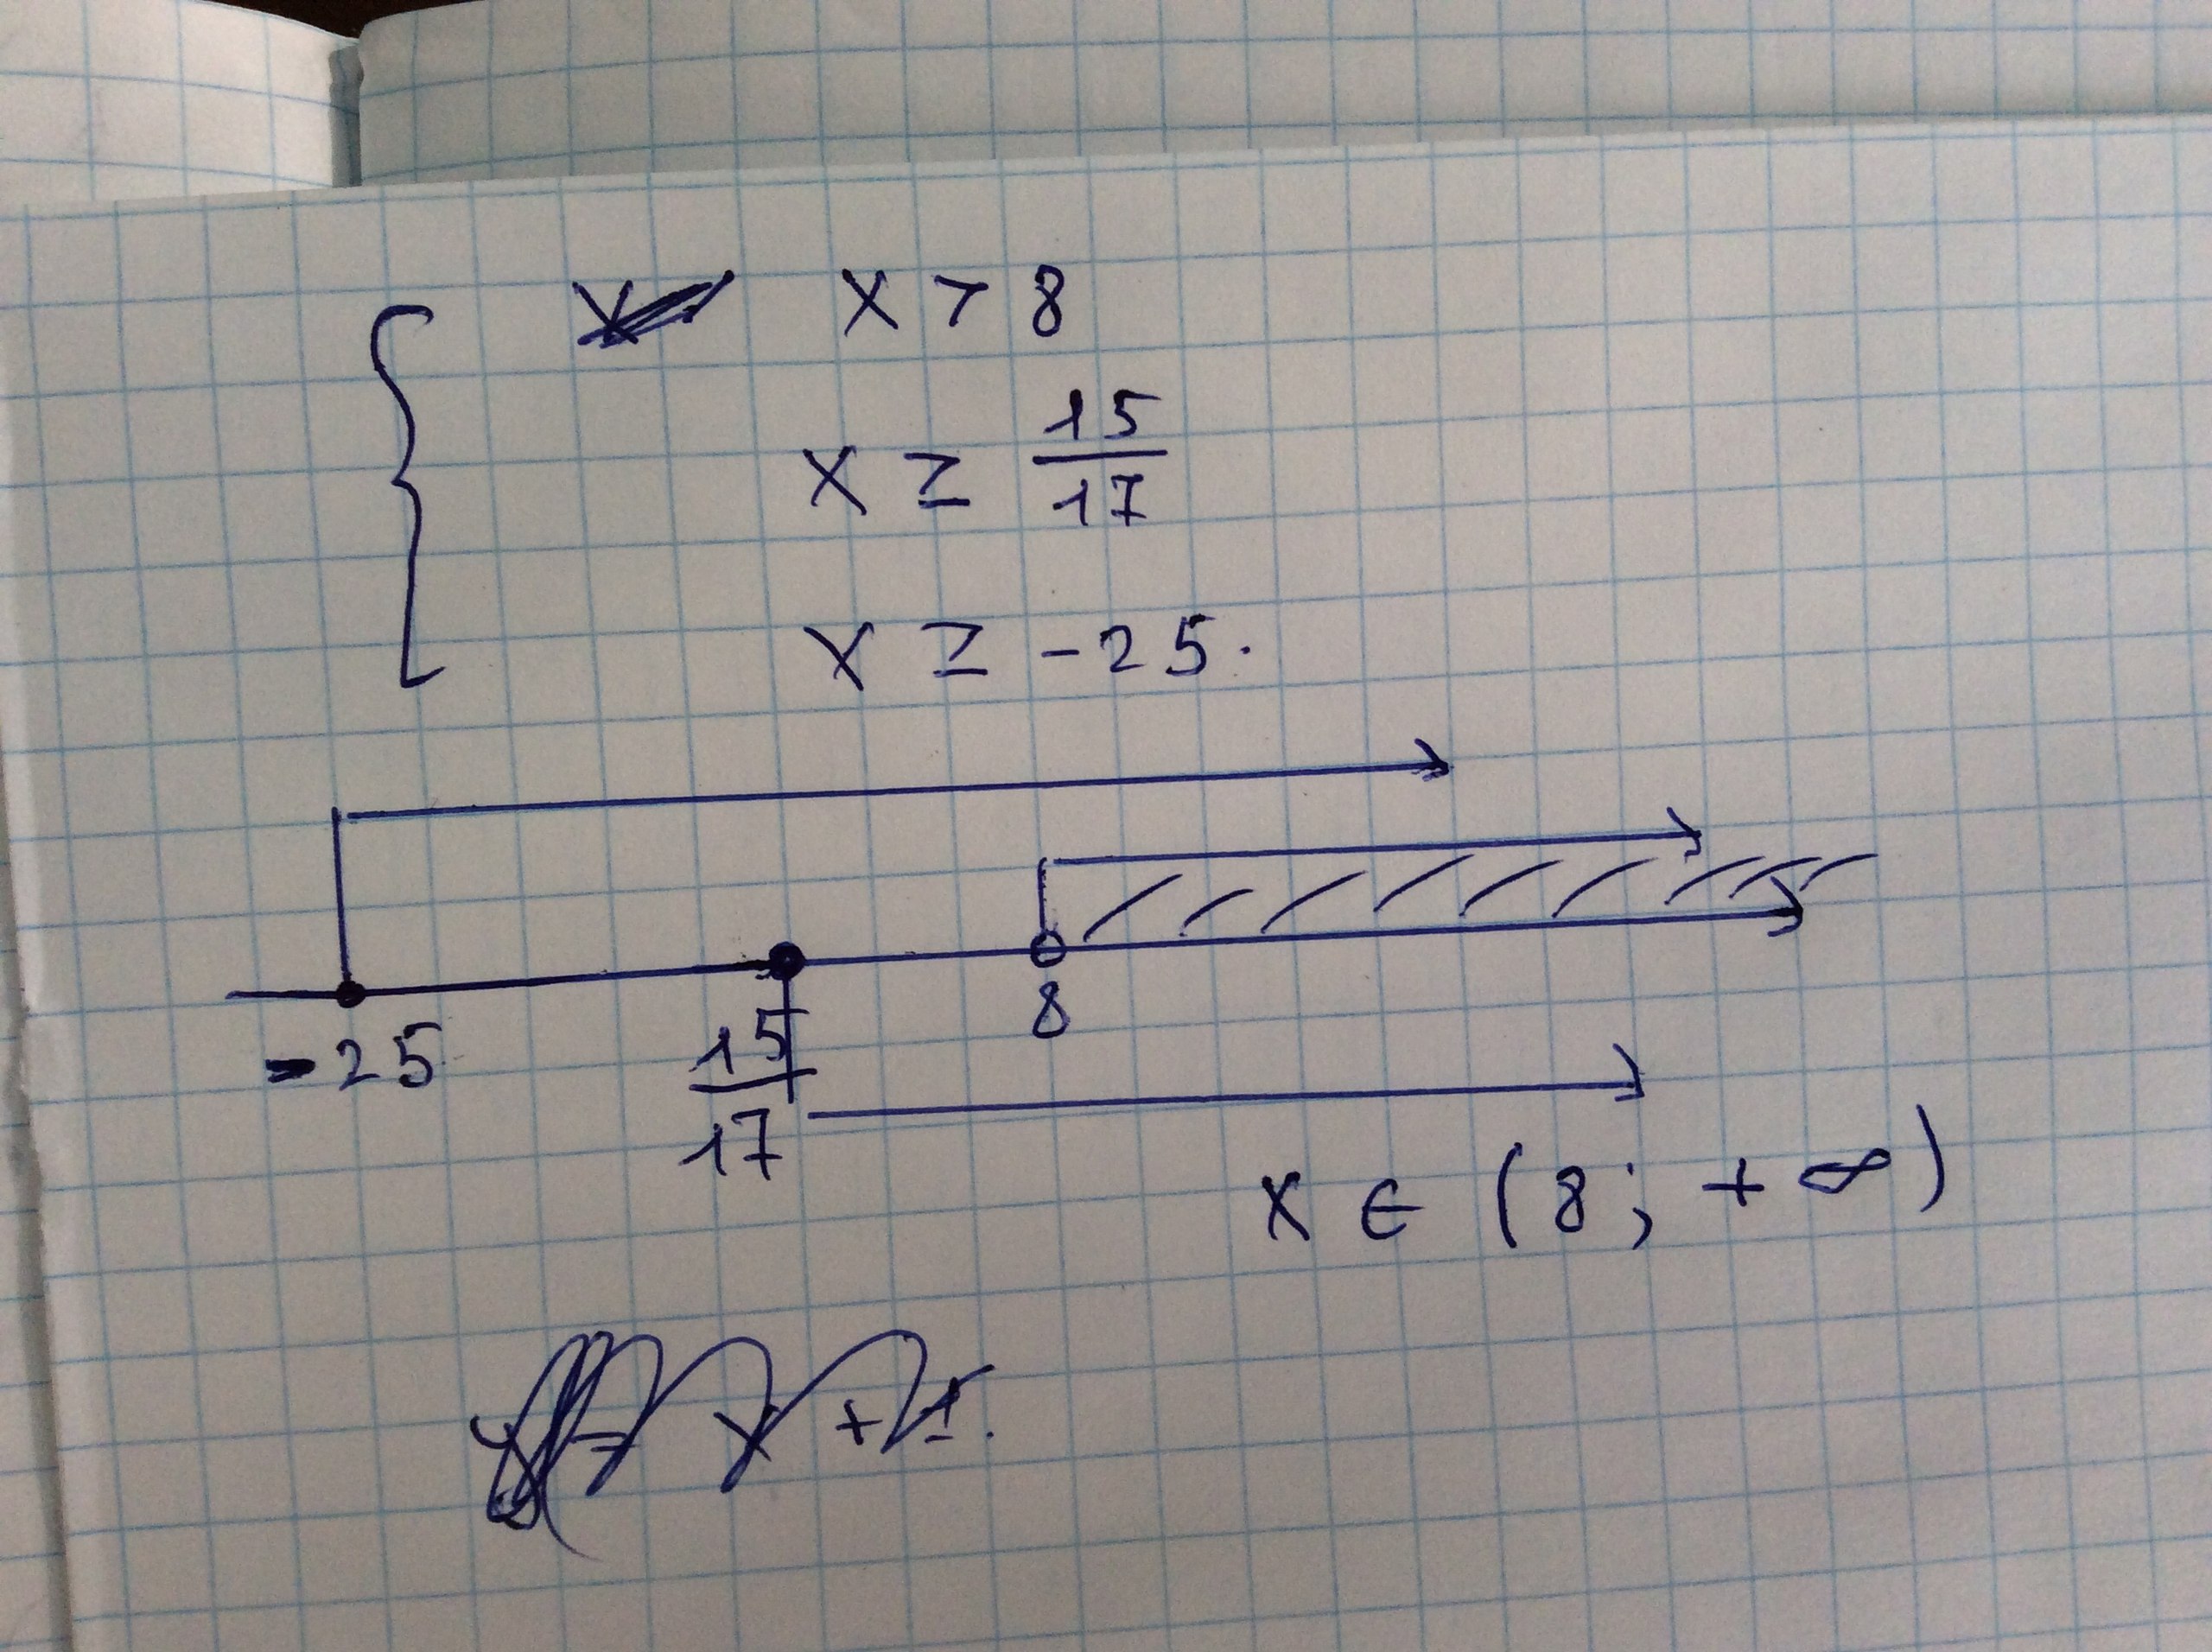 x > 8
x ≥ 15/17
x ≥ -25.
-25 15/17 8
x ∈ (8; +∞)